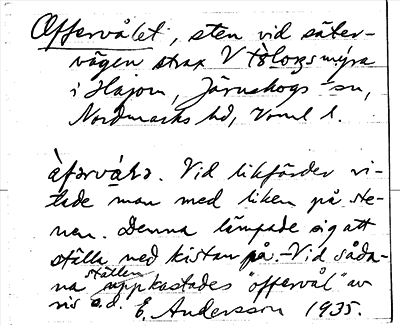 Offervålet, sten vid säter-
vägen strax V
i Hajom, Järnskogs sn,
Nordmarks hd, Vrml l.
àfərvá̀lə. Vid likfärder vi-
lade man med liken på ste-
nen. Denna lämpade sig att
ställa ned kistan på. – Vid såda-
na ställen uppkastades "offervål" av
ris o.d. E. Andersson 1935.